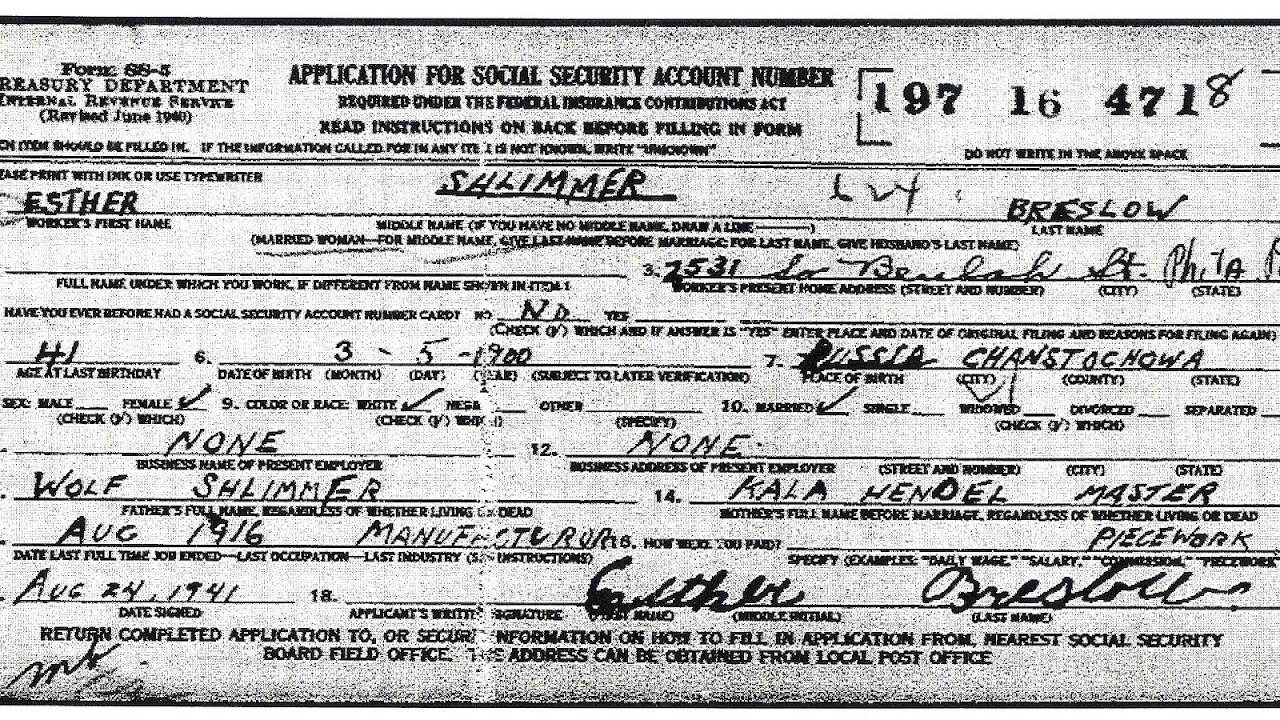 Form SS-5
TREASURY DEPARTMENT
INTERNAL REVENUE SERVICE
(Revised June 1940)
APPLICATION FOR SOCIAL SECURITY ACCOUNT NUMBER
REQUIRED UNDER THE FEDERAL INSURANCE CONTRIBUTIONS ACT
READ INSTRUCTIONS ON BACK BEFORE FILLING IN FORM
197 16 4718
CH ITEM SHOULD BE FILLED IN. IF THE INFORMATION CALLED FOR IN ANY ITE IS NOT KNOWN, WRITE "UNKNOWN"
DO NOT WRITE IN THE ABOVE SPACE
EASE PRINT WITH INK OR USE TYPEWRITER
ESTHER SHLIMMER 624 BRESLOW
WORKER'S FIRST NAME MIDDLE NAME (IF YOU HAVE NO MIDDLE NAME, DRAW A LINE ———) LAST NAME
(MARRIED WOMAN—FOR MIDDLE NAME, GIVE LAST NAME BEFORE MARRIAGE; FOR LAST NAME, GIVE HUSBAND'S LAST NAME)
3. 2531 So Beulah St. Phila
FULL NAME UNDER WHICH YOU WORK, IF DIFFERENT FROM NAME SHOWN IN ITEM 1 WORKER'S PRESENT HOME ADDRESS (STREET AND NUMBER) (CITY) (STATE)
HAVE YOU EVER BEFORE HAD A SOCIAL SECURITY ACCOUNT NUMBER CARD? NO No YES
(CHECK (√) WHICH AND IF ANSWER IS "YES" ENTER PLACE AND DATE OF ORIGINAL FILING AND REASONS FOR FILING AGAIN)
41 6. 3 - 5 - 1900 7. RUSSIA CHANSTOCHOWA
AGE AT LAST BIRTHDAY DATE OF BIRTH (MONTH) (DAY) (YEAR) (SUBJECT TO LATER VERIFICATION) PLACE OF BIRTH (CITY) (COUNTY) (STATE)
SEX: MALE FEMALE ✓ 9. COLOR OR RACE: WHITE ✓ NEG OTHER 10. MARRIED ✓ SINGLE WIDOWED DIVORCED SEPARATED
(CHECK (√) WHICH) (CHECK (√) WHICH) (SPECIFY) (CHECK (√) WHICH)
NONE 12. NONE
BUSINESS NAME OF PRESENT EMPLOYER BUSINESS ADDRESS OF PRESENT EMPLOYER (STREET AND NUMBER) (CITY) (STATE)
WOLF SHLIMMER 14. KALA HENDEL MASTER
FATHER'S FULL NAME, REGARDLESS OF WHETHER LIVING OR DEAD MOTHER'S FULL NAME BEFORE MARRIAGE, REGARDLESS OF WHETHER LIVING OR DEAD
AUG 1916 MANUFACTUROR 16. HOW WERE YOU PAID? PIECEWORK
DATE LAST FULL TIME JOB ENDED—LAST OCCUPATION—LAST INDUSTRY (SEE INSTRUCTIONS) SPECIFY (EXAMPLES: "DAILY WAGE," "SALARY," "COMMISSION," "PIECEWORK"
AUG 24, 1941 18. Esther Breslow
DATE SIGNED APPLICANT'S WRITTEN SIGNATURE (FIRST NAME) (MIDDLE INITIAL) (LAST NAME)
RETURN COMPLETED APPLICATION TO, OR SECURE INFORMATION ON HOW TO FILL IN APPLICATION FROM, NEAREST SOCIAL SECURITY
BOARD FIELD OFFICE. THE ADDRESS CAN BE OBTAINED FROM LOCAL POST OFFICE